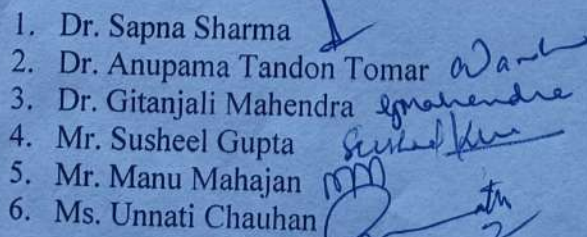 1. Dr. Sapna Sharma
2. Dr. Anupama Tandon Tomar
3. Dr. Gitanjali Mahendra Gmahendra
4. Mr. Susheel Gupta
5. Mr. Manu Mahajan
6. Ms. Unnati Chauhan